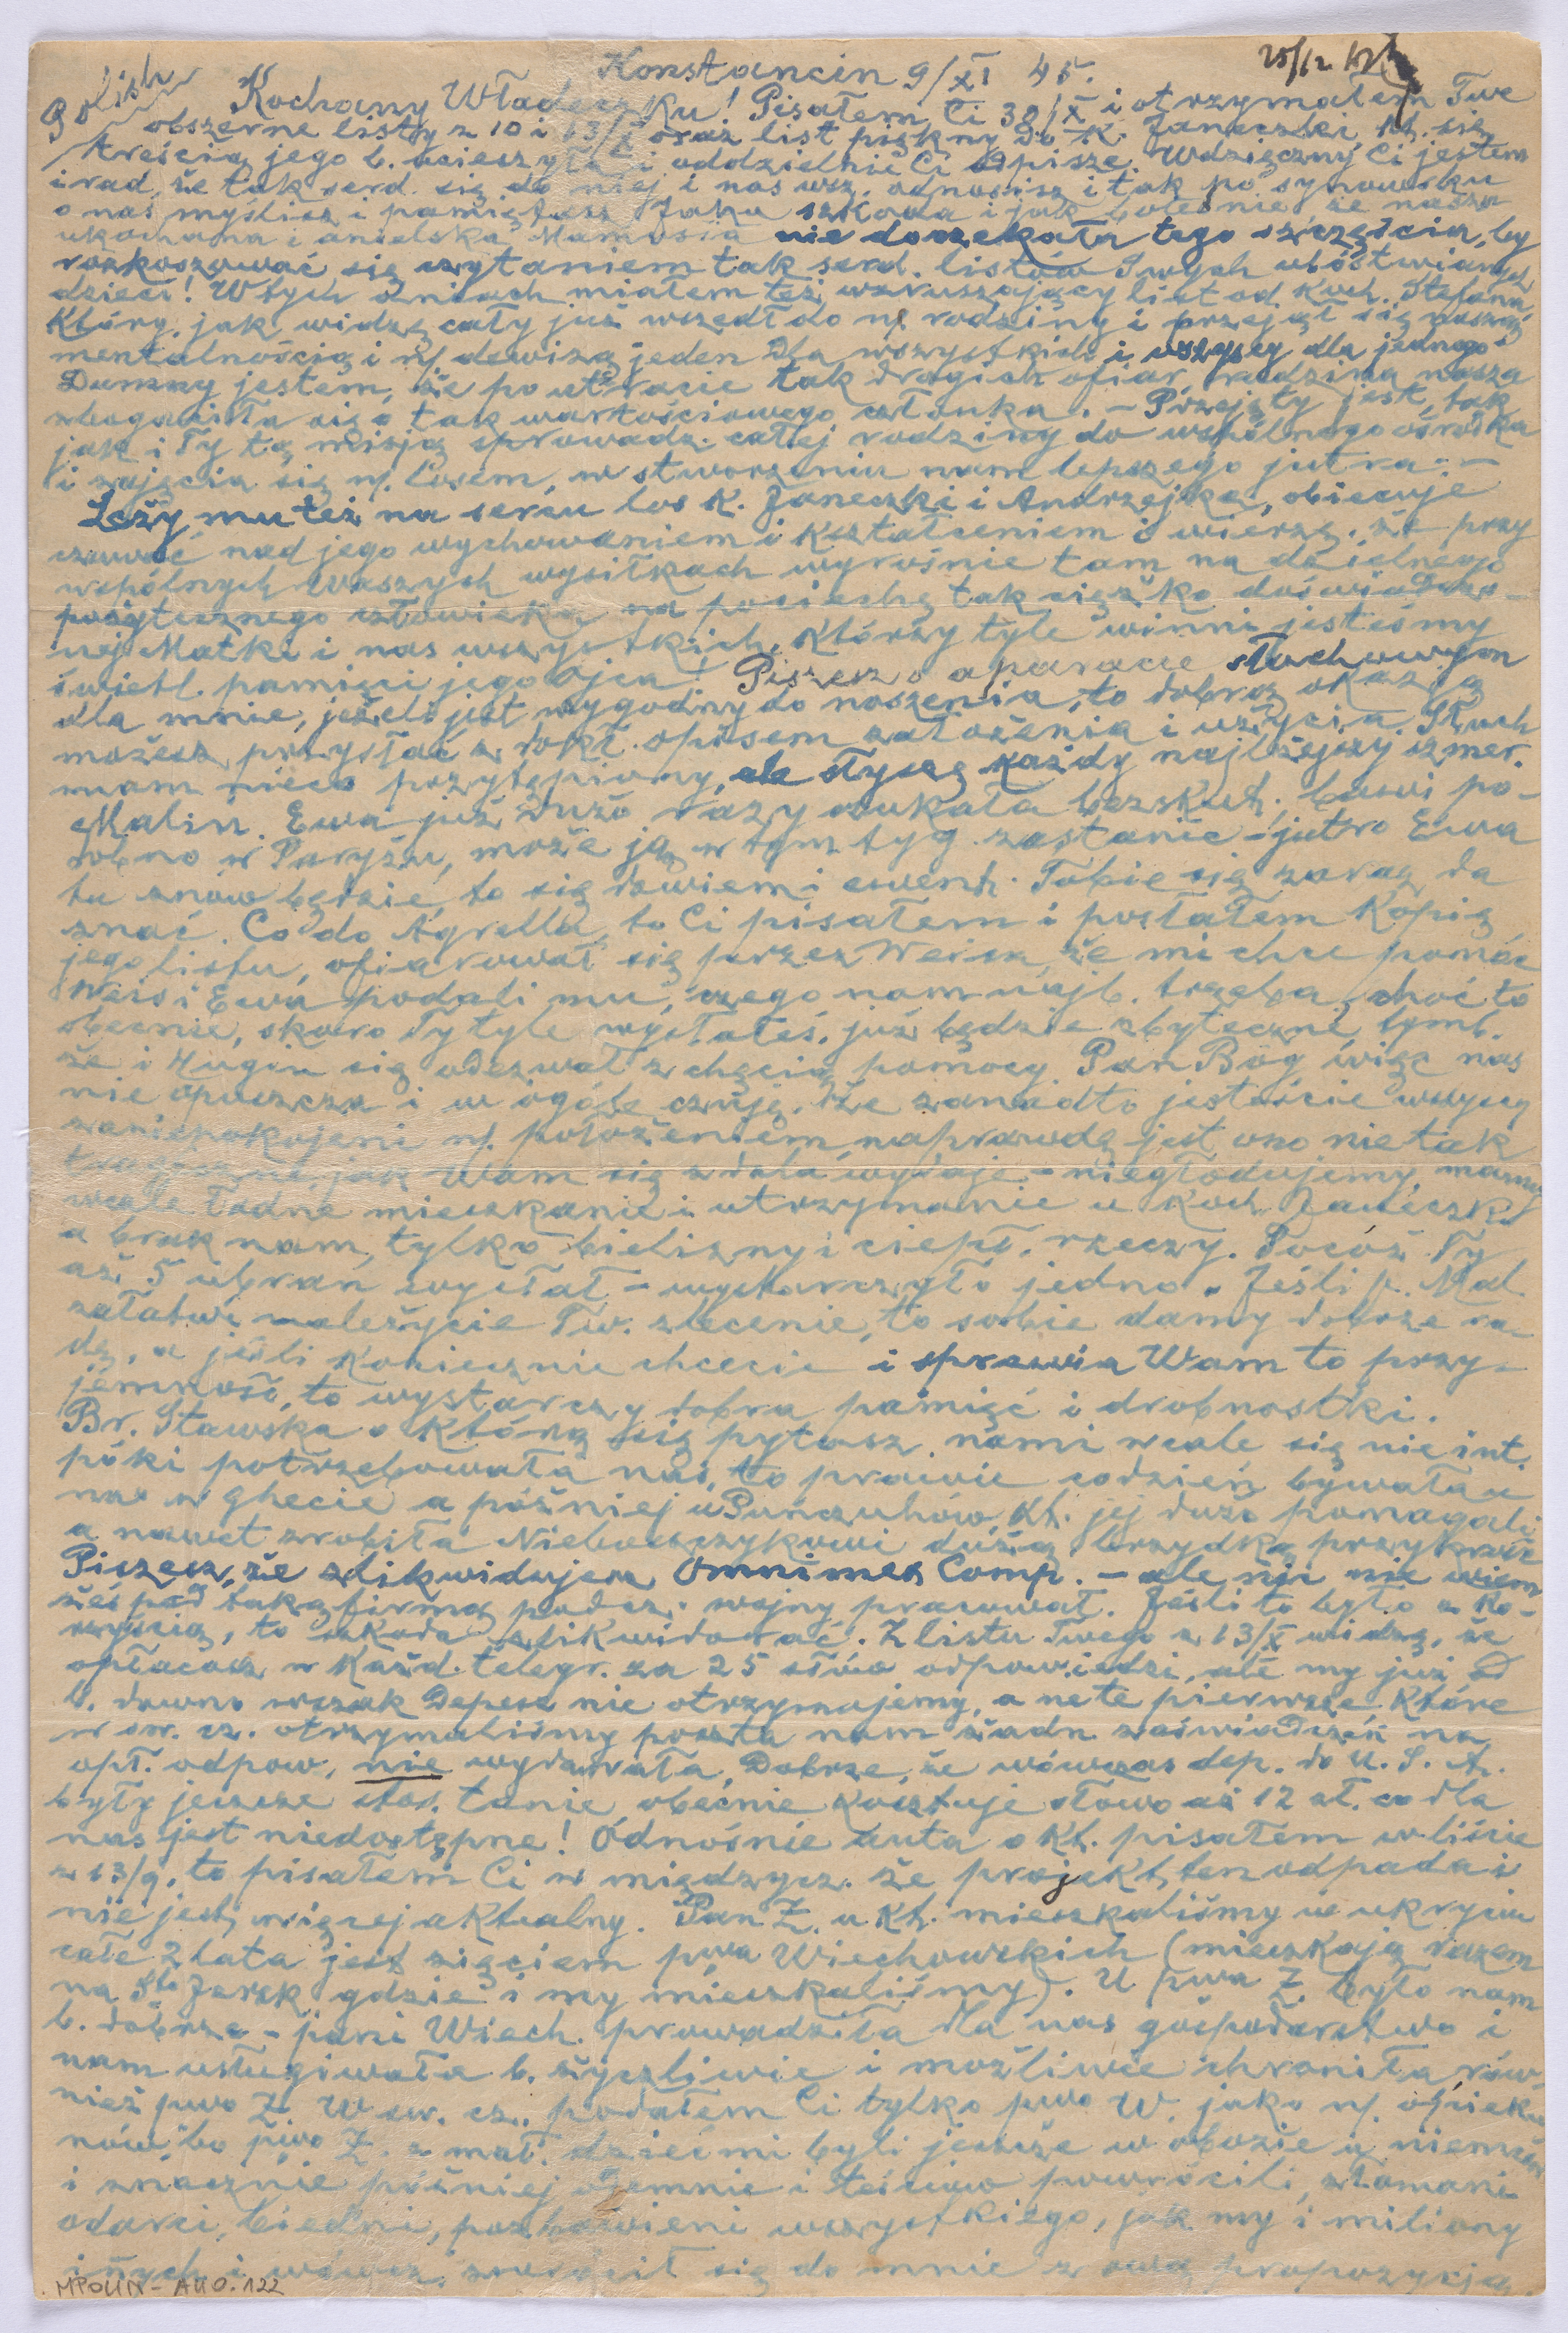 Konstancin 9/XI 45.
25/12 45
Polish
Kochany Władeczku! Pisałem Ci 30/X i otrzymałem Twe
obszerne listy z 10 i 13/X oraz list piękny do K. Janeczki, kt. się
treścią jego b. ucieszyła i oddzielnie Ci odpisze. Wdzięczny Ci jestem
i rad, że tak serd. się do niej i nas wsz. odnosisz i tak po synowsku
o nas myślisz i pamiętasz. Jaka szkoda i jak boleśnie że nasza
ukochana i anielska Mamusia nie doczekała tego szczęścia, by
rozkoszować się czytaniem tak serd. listów Swych ubóstwianych
dzieci! W tych dniach miałem też wzruszający list od Koch. Stefana,
który, jak widzę cały już wszedł do n/ rodziny i przejął się naszą
mentalnością i n/ dewizą jeden dla wszystkich i wszyscy dla jednego
Dumny jestem, że po utracie tak drogich ofiar, rodzina nasza
wzbogaciła się o tak wartościowego członka. - Przejęty jest, tak
jak i Ty tą misją sprowadz. całej rodziny do wspólnego ośrodka
i zajęcia się n/. losem, w stworzeniu nam lepszego jutra. -
Leży mu też na sercu los K. Janeczki i Andrzejka, obiecuje
czuwać nad jego wychowaniem i kształceniem i wierzę, że przy
wspólnych Waszych wysiłkach wyrośnie tam na dzielnego
pożytecznego człowieka na pociechę tak ciężko doświadczo-
nej Matki i nas wszystkich, którzy tyle winni jesteśmy
świetl. pamięci jego ojca! Piszesz o aparacie słuchowym
dla mnie, jeżeli jest wygodny do noszenia, to dobrą okazją
możesz przysłać z dokł. opisem założenia i użycia. Słuch
mam nieco przytępiony, ale słyszę każdy najlżejszy szmer.
Malin. Ewa już dużo razy szukała bezskut., bawi po-
dobno w Paryżu, może ją w tym tyg. zastanie - jutro Ewa
tu znów będzie, to się dowiem i ewent. Tobie się zaraz da
znać. Co do Agrella, to Ci pisałem i posłałem kopię
jego listu, ofiarował się przez Weisa, że mi chce pomóc
Weis i Ewa podali mu, czego nam najb. trzeba, choć to
obecnie, skoro Ty tyle wysłałeś, już będzie zbyteczne, tymb.
że i Hugin się odezwał z chęcią pomocy. Pan Bóg więc nas
nie opuszcza i w ogóle czuję, że zanadto jesteście wszyscy
zaniepokojeni n/. położeniem, naprawdę jest ono nie tak
tragiczne, jak Wam się z dala wydaje - nie głodujemy, mamy
wcale ładne mieszkanie i utrzymanie u Koch. Janeczki
a brak nam, tylko bielizny i ciepł. rzeczy. Pocóż Ty
aż 5 ubrań wysłał - wystarczyło jedno. Jeśli p. Mal.
załatwi należycie Tw. zlecenie, to sobie damy dobrze ra-
dę, a jeśli koniecznie chcecie i sprawia Wam to przy-
jemność, to wystarczy dobra pamięć i drobnostki.
Br. Stawska o którą się pytasz, nami wcale się nie int.
póki potrzebowała nas, to prawie codzień bywała u
nas w ghecie a później u Puńczuhów, kt. jej dużo pomagali
a nawet zrobiła Nieboszczykowi dużą brzydką przykrość
Piszesz, że zlikwidujesz Omnimex Comp. - ale nic nie wiem
żeś pod taką firmą podcz. wojny pracował. Jeśli to było z ko-
rzyścią, to szkoda zlikwidować. Z listu Twego z 13/X widzę, że
opłacasz w każd. telegr. za 25 słów odpowiedzi, ale my już od
b. dawna wszak depesz nie otrzymujemy, a na te pierwsze, które
w sw. cz. otrzymaliśmy poczta nam żadn. zaświadczeń na
opł. odpow. nie wydawała. Dobrze, że wówczas dep. do U.S.A.
były jeszcze stos. tanie, obecnie kosztuje słowo aż 12 zł. co dla
nas jest niedostępne! Odnośnie auta o kt. pisałem w liście
z 13/9, to pisałem Ci w międzycz. że projekt ten odpada i
nie jest więcej aktualny. Pan Z. u kt. mieszkaliśmy w ukryciu
całe 2 lata jest zięciem pwa Wiechowskich (mieszkają razem
na Sto Jersk. gdzie i my mieszkaliśmy). U pwa Z. było nam
b. dobrze - pani Wiech. prowadziła dla nas gospodarstwo i
nam usługiwała b. życzliwie i możliwie chroniła, rów-
nież pwo Z. W sw. cz. podałem Ci tylko pwo W. jako n/. opieku-
nów bo pwo Z. z mał. dziećmi byli jeszcze w obozie u niemców
i znacznie później odemnie i teściów powrócili, złamani
odarci, biedni, pozbawieni wszystkiego, jak my i miliony
innych i wówcz. zwrócił się do mnie z ową propozycją
MPOLIN - A110.122